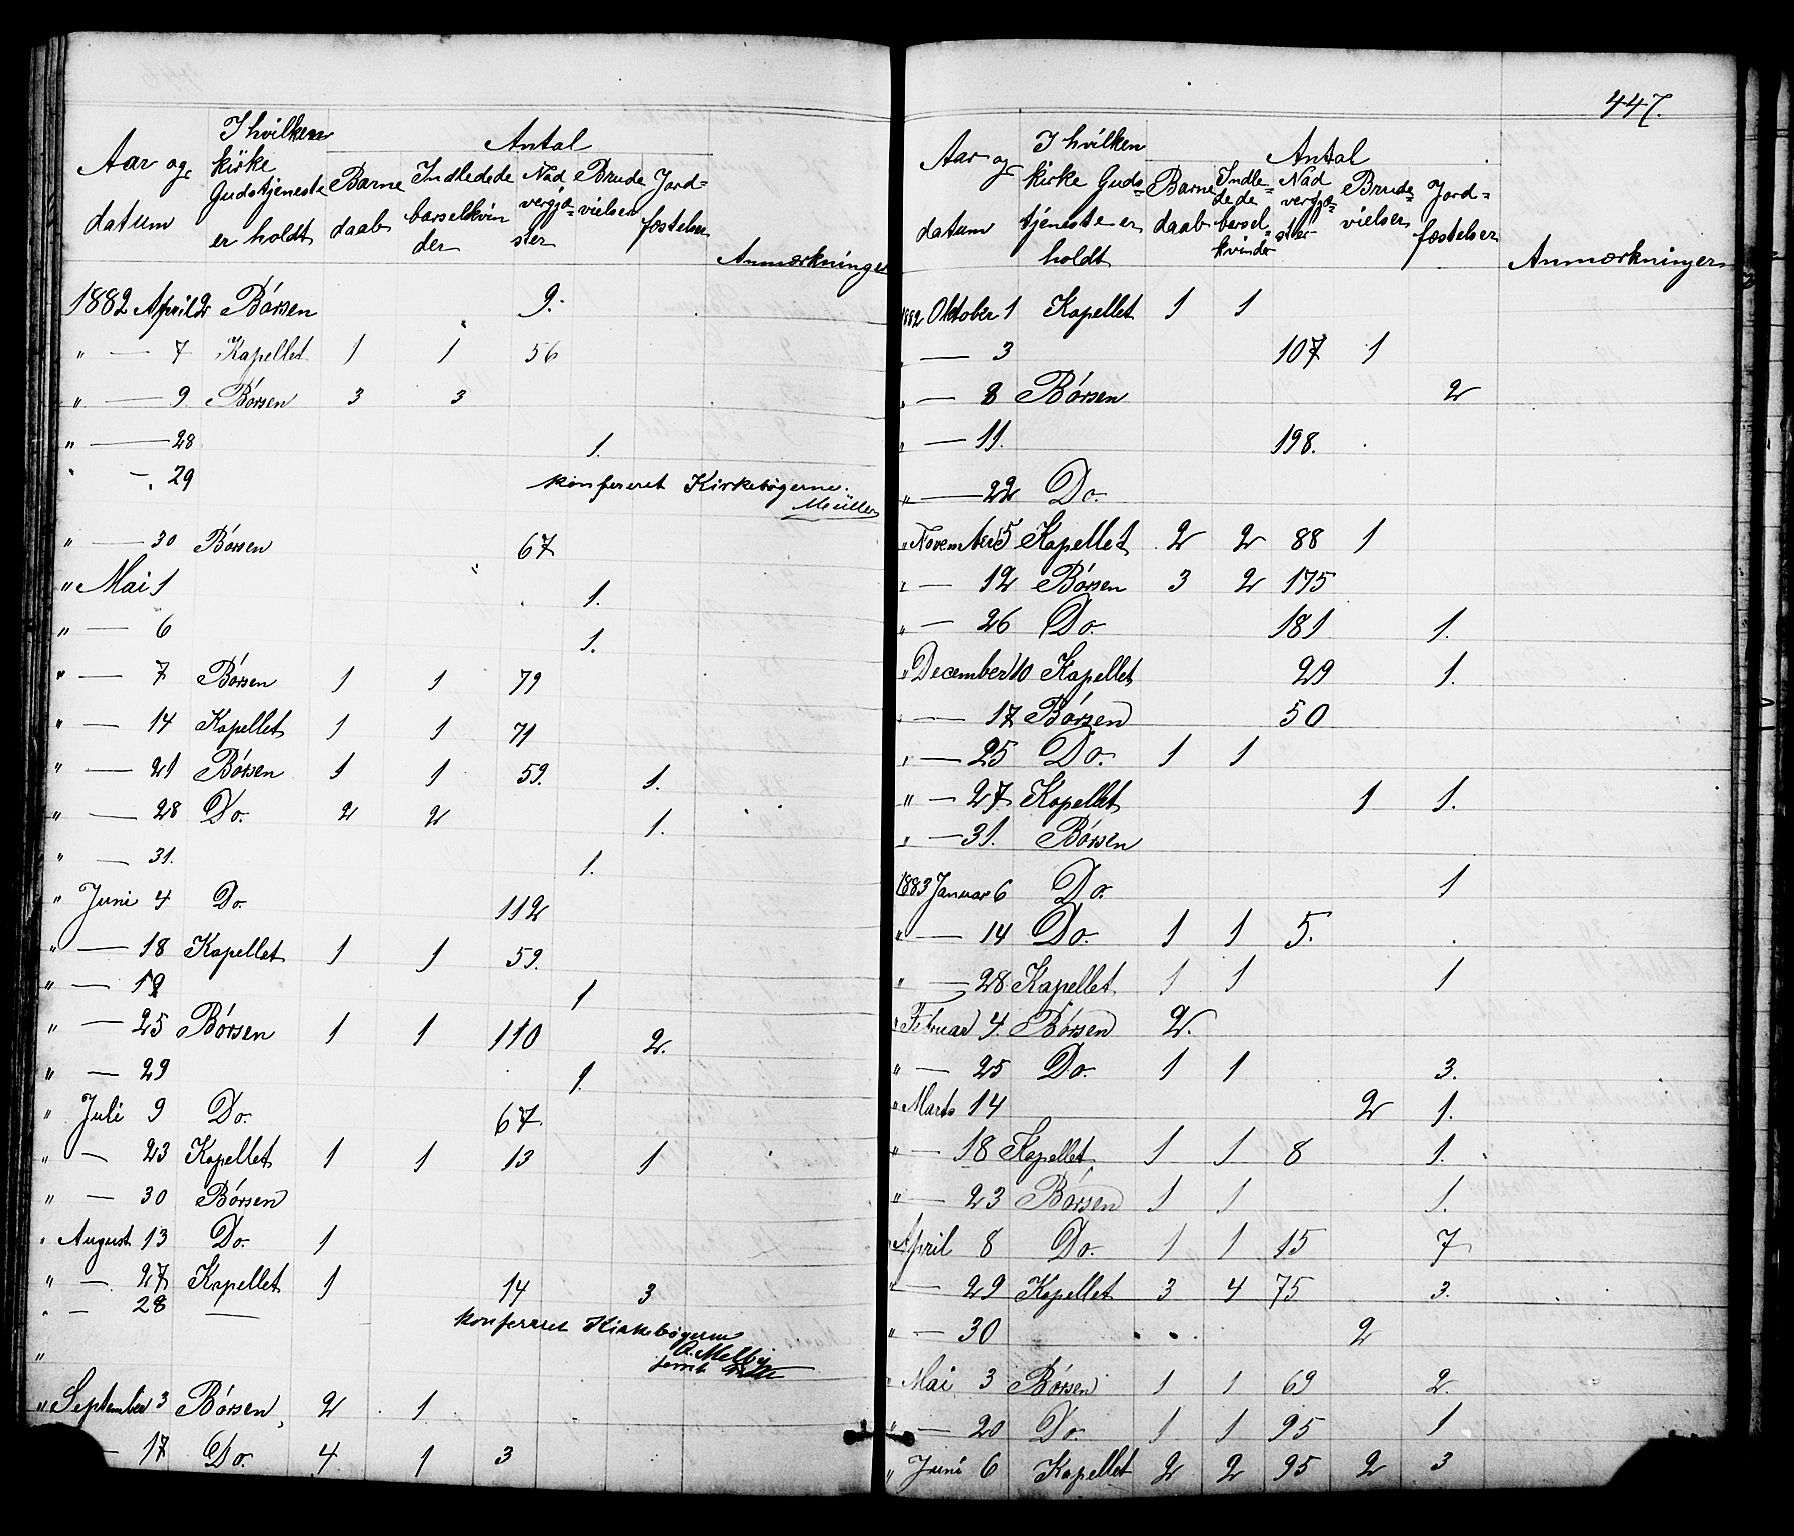 Aar og datum | I hvilken kirke Gudstjeneste er holdt | Antal | Anmærkninger
Barne daab | Indledede barselkvin der | Nad vergjæ- ster | Brude vielser | Jord= fæstelser
1882 April 2 Børsen 9.
" — 7 Kapellet 1 1 56
" — 9. Børsen 3 3
" — 28 1.
" — 29 konfereret Kirkebøgerne.
Müller
" — 30 Børsen 67
" Mai 1 1.
" — 6 1.
" — 7 Børsen 1 1 79
" — 14 Kapellet 1 1 71
" — 21 Børsen 1 1 59. 1.
" — 28 Do. 2 2 1.
" — 31. 1.
" Juni 4 Do. 112
" — 18 Kapellet 1 1 59.
" — 19 1
" — 25 Børsen 1 1 110 2.
" — 29 1.
" Juli 9 Do. 67.
" — 23 Kapellet 1 1 13 1
" — 30 Børsen
" August 13 Do. 1
" — 27 Kapellet 1 14 3
" — 28 —
konfereret Kirkebøgerne
O. Melby
"
" September 3 Børsen 2 1
— 17 Do. 4 1 3
447.
Aar og datum | I hvilken kirke Guds= tjeneste er holdt | Antal | Anmærkninger
Barne daab | Indle= dede barsel- kvinder | Nad vergjæ- ster | Brude= vielser | Jord= fæstelser
1882 Oktober 1 Kapellet 1 1
" — 3 107 1
" — 8 Børsen 2
" — 11. 198.
" — 22 Do.
" November 5 Kapellet 2 2 88 1
" — 12 Børsen 3 2 175
" — 26 Do. 181 1.
" December 10 Kapellet 29 1.
" — 17 Børsen 50
" — 25 Do. 1 1
" — 27 Kapellet 1 1.
" — 31. Børsen
1883 Januar 6 Do. 1
" — 14 Do. 1 1 5.
" — 28 Kapellet 1 1 1
" Februar 4. Børsen 2.
" — 25 Do. 1 1 3.
" Marts 14 2 1.
" — 18 Kapellet 1 1 8 1.
" — 23 Børsen 1 1 1.
" April 8 Do. 1 1 15 7
" — 29 Kapellet 3 4 75 3.
" — 30 2
" Mai 3 Børsen 1 1 69 2.
" — 20 Do. 1 1 95 1
" Juni 6 Kapellet 2 2 95 2 3